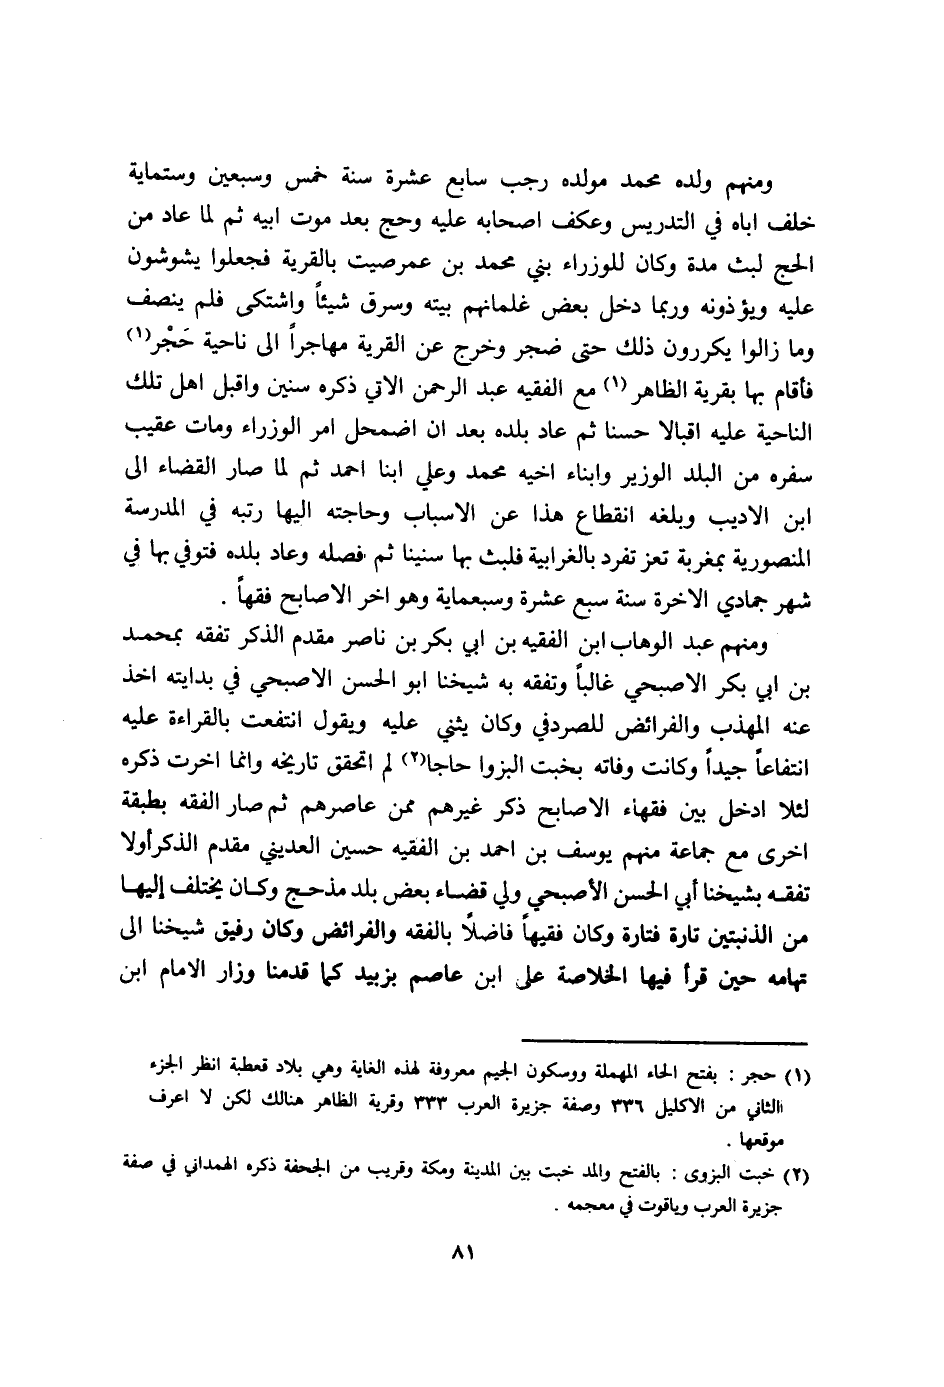 ومنهم ولده محمد مولده رجب سابع عشرة سنة خمس وسبعين وستماية
خلف اباه في التدريس وعكف اصحابه عليه وحج بعد موت ابيه ثم لما عاد من
الحج لبث مدة وكان للوزراء بني محمد بن عمرصيت بالقرية فجعلوا يشوشون
عليه ويؤذونه وربما دخل بعض غلمانهم بيته وسرق شيئاً واشتكى فلم ينصف
وما زالوا يكررون ذلك حتى ضجر وخرج عن القرية مهاجراً الى ناحية حَجْر(١)
فأقام بها بقرية الظاهر (١) مع الفقيه عبد الرحمن الاتي ذكره سنين واقبل اهل تلك
الناحية عليه اقبالا حسنا ثم عاد بلده بعد ان اضمحل امر الوزراء ومات عقيب
سفره من البلد الوزير وابناء اخيه محمد وعلي ابنا احمد ثم لما صار القضاء الى
ابن الاديب وبلغه انقطاع هذا عن الاسباب وحاجته اليها رتبه في المدرسة
المنصورية بمغربة تعز تفرد بالغرابية فلبث بها سنينا ثم فصله وعاد بلده فتوفي بها في
شهر جمادي الاخرة سنة سبع عشرة وسبعماية وهو اخر الاصابح فقهاً .
ومنهم عبد الوهاب ابن الفقيه بن ابي بكر بن ناصر مقدم الذكر تفقه بمحمد
بن ابي بكر الاصبحي غالباً وتفقه به شيخنا ابو الحسن الاصبحي في بدايته اخذ
عنه المهذب والفرائض للصردفي وكان يثني عليه ويقول انتفعت بالقراءة عليه
انتفاعاً جيداً وكانت وفاته بخبت البزوا حاجا(٢) لم اتحقق تاريخه وانما اخرت ذكره
لئلا ادخل بين فقهاء الاصابح ذكر غيرهم ممن عاصرهم ثم صار الفقه بطبقة
اخرى مع جماعة منهم يوسف بن احمد بن الفقيه حسين العديني مقدم الذكرأولا
تفقه بشيخنا أبي الحسن الأصبحي ولي قضاء بعض بلد مذحج وكان يختلف إليها
من الذنبتين تارة فتارة وكان فقيهاً فاضلًا بالفقه والفرائض وكان رفيق شيخنا الى
تهامه حين قرأ فيها الخلاصة على ابن عاصم بزبيد كما قدمنا وزار الامام ابن
(١) حجر : بفتح الحاء المهملة ووسكون الجيم معروفة لهذه الغاية وهي بلاد قعطبة انظر الجزء
االثاني من الاكليل ٣٣٦ وصفة جزيرة العرب ٣٣٣ وقرية الظاهر هنالك لكن لا اعرف
موقعها .
(٢) خبت البزوى : بالفتح والمد خبت بين المدينة ومكة وقريب من الجحفة ذكره الهمداني في صفة
جزيرة العرب وياقوت في معجمه .
٨١